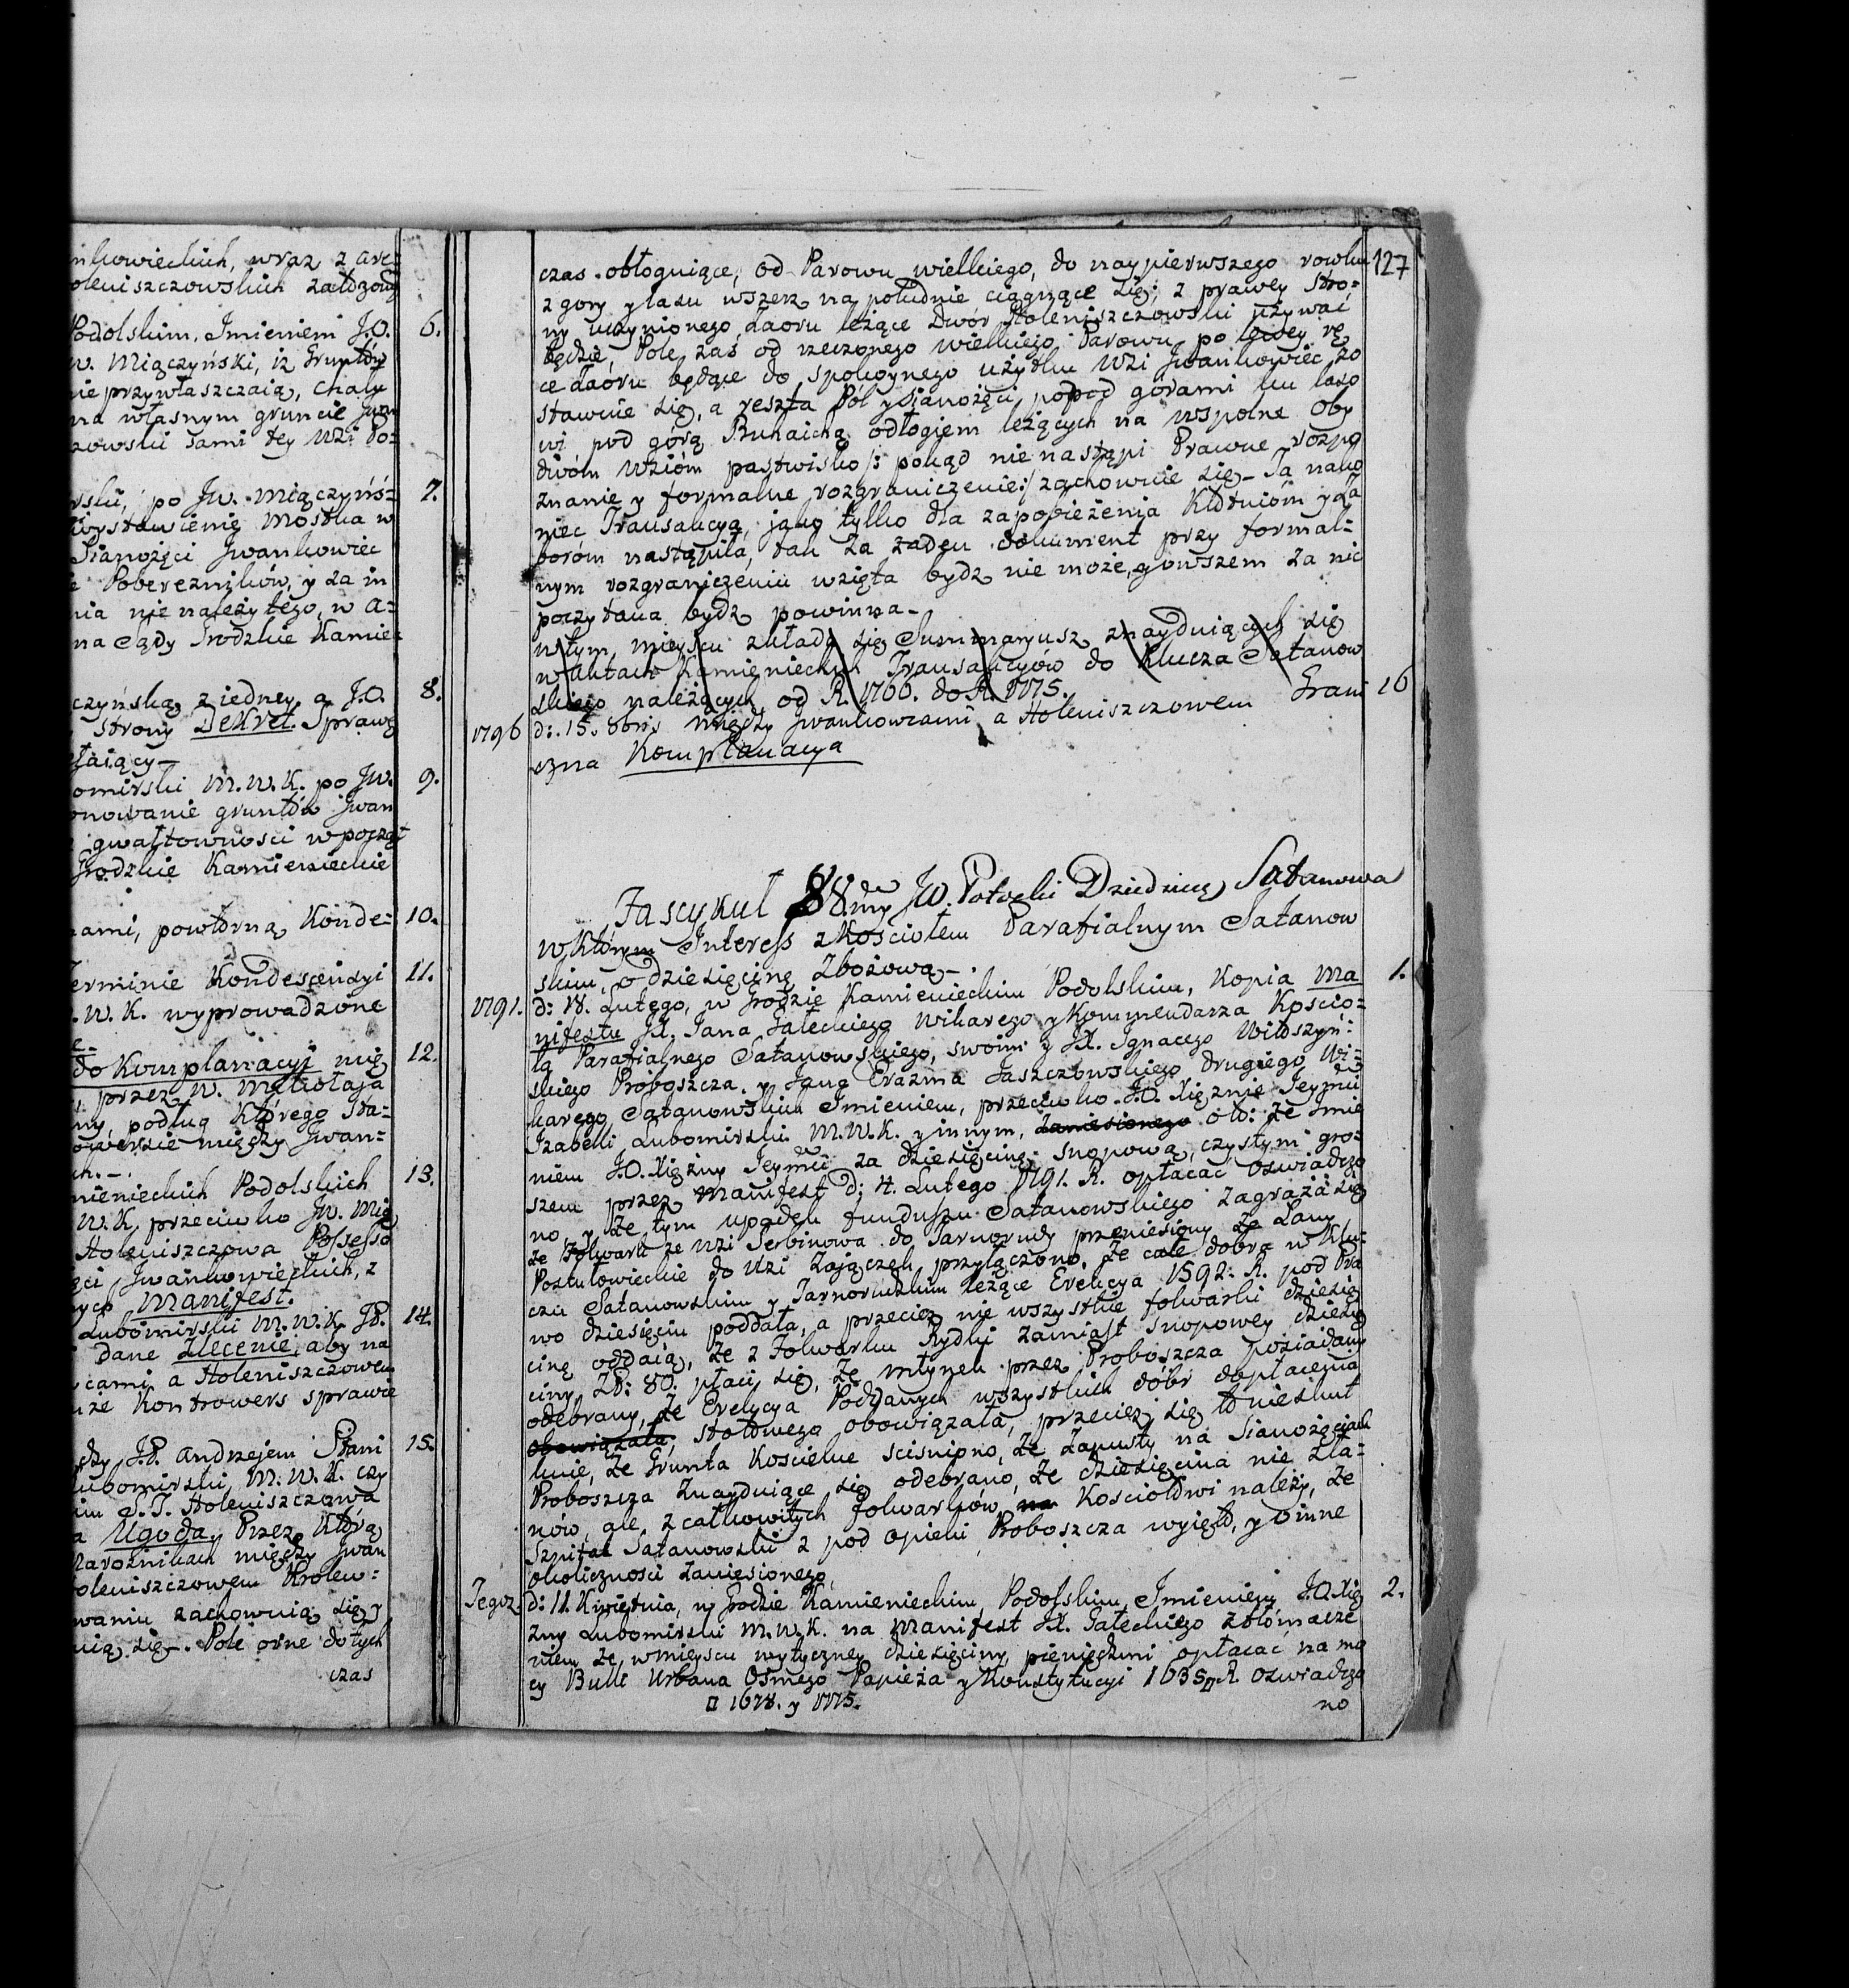 nkowieckich, wraz z are=
oleniszczowskich zatdzony
Podolskim, Imieniem J.O. 6.
w. Miączyński, iż Grunty
nie przywłaszczaią, Chaty
na własnym gruncie Jwan
zowski sami tey Wzi do=
rski, po Jw. Miączyńs= 7.
wystawienie Mostka w
Sianożęci Jwankowiec
e Pobereznikow, y za in
nia nie należytego, w a=
na Sądy Grodzkie Kamie=
czyńską z iedney a J.O. 8.
strony Dekret. Sprawę
łaiący—
omirski M.W.K. po Jw. 9.
onowanie gruntów Jwan
gwałtowności w począt
Grodzkie Kamienieckie
ami, powtorną Konde= 10.
erminie Kondescensyi 11.
.W.K. wyprowadzone
do Komplanacyi mię 12.
przez W. Mikołaja
ny, podług Którego sta=
owersie między Jwan=
ch.—
mienieckich Podolskich 13.
W.K. przeciwko Jw. Mią
Holeniszczowa Possesso
ęci Jwankowieckich, z
nych Manifest.
Lubomirski M.W.K. JP. 14.
Dane Zlecenie, aby na
cami a Holeniszczowem
ze Kontrowers sprawie
dzy J.P. Andrzejem Stani 15.
ubomirski, M.W.K. czy
im S.T. Holeniszczowa
a Ugoda, Przez Którą
Narożnikach między Jwan
oleniszczowem Krolew=
waniu zachownią się y
nią się—. Pole orne dotych
czas
czas obłoguiące, od Parowu wielkiego, do naypierwszego rowku 127
z gory y lasu wszerz na południe ciągnące się; z prawey Stro=
ny uczynionego Zaoru leżące Dwór Holeniszczowski używać
będzie, Pole zaś od rzeczonego wielkiego Parowu po lewey rę
ce Zaoru będące do spokoynego użytku Wzi Jwankowiec zo
stawuie się, a reszta Pól y sianożęci popod górami ku laso
wi pod górą Buhaichą odłogiem leżących na wspolne Oby
dwóm Wzióm pastwisko /: pokąd nie nastąpi Prawne rozpo
znanie y formalne rozgraniczenie :/ zachowuie się— Ta nako
niec Transakcya, jako tylko dla zapobieżenia Kłótnióm y Za
borom nastąpiła, tak za żaden dokument przy formal=
nym rozgraniczeniu wzięta bydz nie może, y owszem za nic
poczytana bydz powinna—
w tym mieyscu zkłada się Summaryusz znayduiących się
w aktach Kamienieckich Transakcyów do Klucza Satanow
skiego należących od R. 1766. do R. 1775.
1796 d: 15. 8bris między Jwankowcami a Holeniszczowem Grani 16
czna Komplanacya
Fascykul 88my Jw. Potocki Dziedzicę Satanowa
w Którym Interess z Kościołem Parafialnym Satanow
skim, o dziesięcinę Zbożową—.
1791. d: 18. Lutego, w Grodzie Kamienieckim Podolskim, Kopia Ma 1.
nifestu JX. Jana Gałeckiego Wikarego y Kommendarza Kościo=
ła Parafialnego Satanowskiego, swoim y JX. Ignacego Witoszyń=
skiego Proboszcza, y Jana Erazma Jaszczowskiego drugiego Wi=
karego Satanowskich Imieniem, przeciwko J.O. Xiężnie Jeymći
Izabelli Lubomirski M.W.K. y innym, zaniesionego oto: że Imie
niem J.O. Xiężny Jeymći za dziesięcinę snopową, czystym gro=
szem przez Manifest d: 4. Lutego 1791. R. opłacać oswiadczo
no y że tym upadek funduszu Satanowskiego zagraża się
że Folwark ze Wzi Serbinowa do Tarnorudy przeniesiony że Lany
Postułowieckie do Wzi Zajączek przyłączono, że całe dobra w Klu=
czu Satanowskim y Tarnorudzkim leżące Erekcya 1592. R. pod Pra
wo dziesięciu poddała, a przecież nie wszystkie folwarki dziesię
cinę oddaią, że z Folwarku Rydki zamiast snopowey dziesię
ciny ZP: 80. płaci się, że młynek przez Proboszcza posiadany
odebrany, że Erekcya Poddanych wszystkich dóbr dopłacenia
obowiązała, stołowego obowiązała, przecież się to nieskut
kuie, że Grunta Kościelne sciśniono, że Zapusty na Sianożęciach
Proboszcza znayduiące się odebrano, że dziesięcina nie z Ła=
nów, ale z całkowitych folwarków, na Kościołowi należy, że
Szpital Satanowski z pod opieki Proboszcza wyięto, y o inne
okoliczności zaniesionego,
Tegoż d: 11. Kwietnia, w Grodzie Kamienieckim, Podolskim, Imieniem J.O. Xię 2.
żny Lubomirski M.W.K. na Manifest JX. Gałeckiego z tłómacze
niem że w mieyscu wytyczney dziesięciny, pieniędzmi opłacać na mo
cy Bulli Urbana Osmego Papieża y Konstytucyi 1635 R oswiadczo
1678. y 1775. no